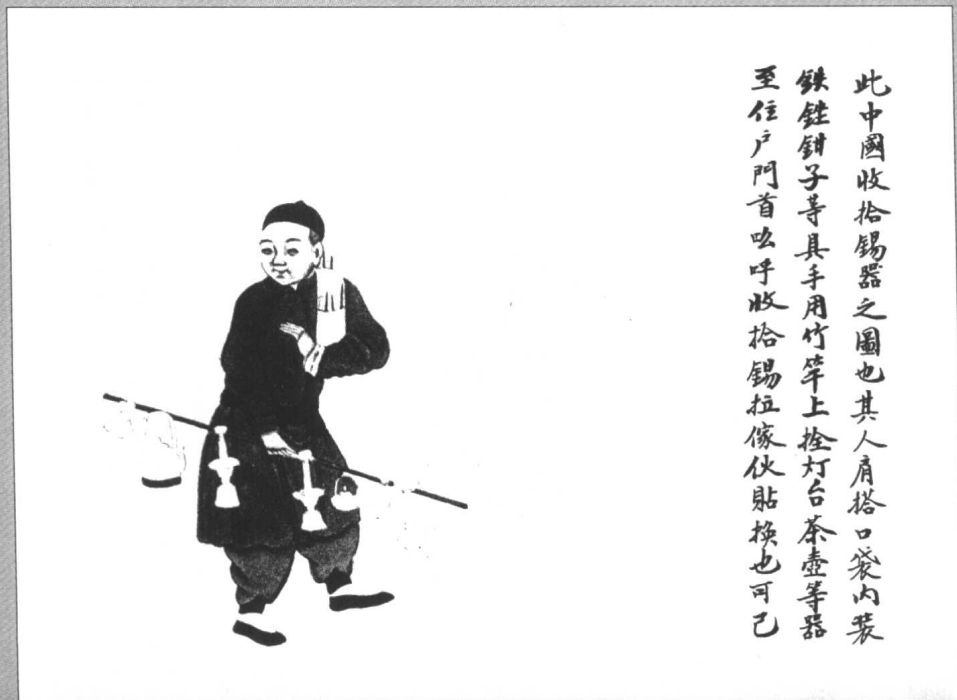 此中國收拾錫器之圖也其人肩搭口袋内裝
鉄銼鉗子等具手用竹竿上拴灯台茶壺等器
至住户門首吆呼收拾錫拉傢伙貼換也可已